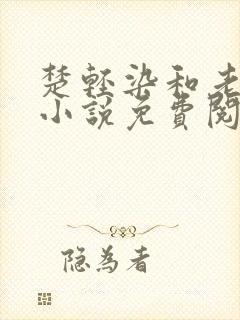 楚轻染和老
小说免费阅
隐为者